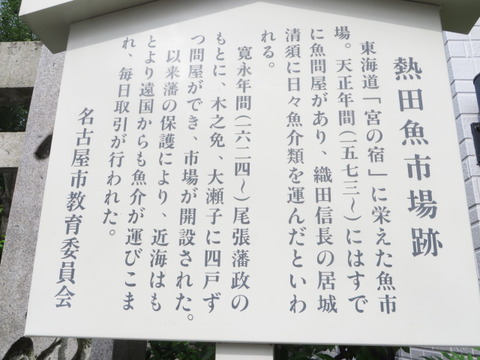 熱田魚市場跡
東海道「宮の宿」に栄えた魚市
場。天正年間(一五七三〜)にはすで
に魚問屋があり、織田信長の居城
清須に日々魚介類を運んだといわ
れる。
寛永年間(一六二四〜)尾張藩政の
もとに、木之免、大瀬子に四戸ず
つ問屋ができ、市場が開設された。
以来藩の保護により、近海はも
とより遠国からも魚介が運びこま
れ、毎日取引が行われた。
名古屋市教育委員会